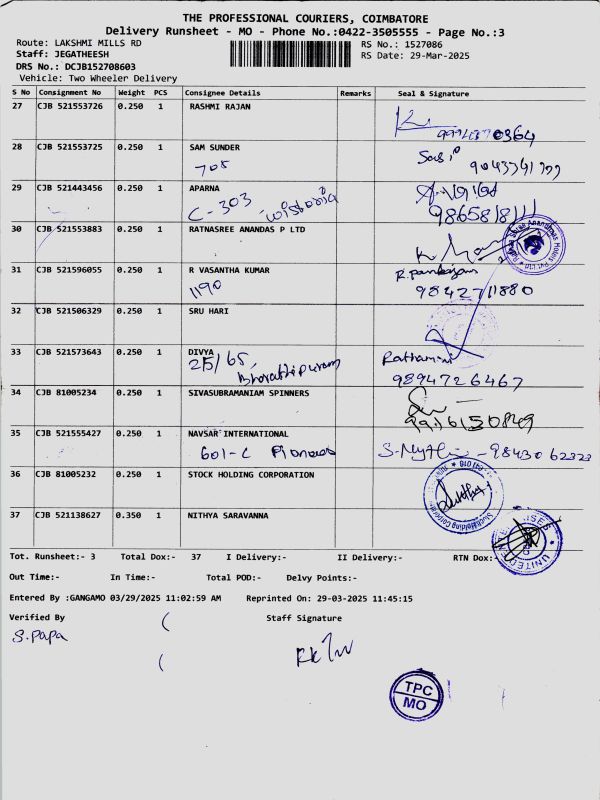 THE PROFESSIONAL COURIERS, COIMBATORE
Delivery Runsheet - MO - Phone No.:0422-3505555 - Page No.:3
Route: LAKSHMI MILLS RD
RS No.: 1527086
Staff: JEGATHEESH
RS Date: 29-Mar-2025
DRS No.: DCJB152708603
Vehicle: Two Wheeler Delivery
S No Consignment No Weight PCS Consignee Details Remarks Seal & Signature
27 CJB 521553726 0.250 1 RASHMI RAJAN
28 CJB 521553725 0.250 1 SAM SUNDER
705
29 CJB 521443456 0.250 1 APARNA
C-303 wistoria
30 CJB 521553883 0.250 1 RATNASREE ANANDAS P LTD
31 CJB 521596055 0.250 1 R VASANTHA KUMAR
1190
9842711880
32 CJB 521506329 0.250 1 SRU HARI
33 CJB 521573643 0.250 1 DIVYA
215/65, Bharathipuram
9894726467
34 CJB 81005234 0.250 1 SIVASUBRAMANIAM SPINNERS
35 CJB 521555427 0.250 1 NAVSAR INTERNATIONAL
601-C
36 CJB 81005232 0.250 1 STOCK HOLDING CORPORATION
37 CJB 521138627 0.350 1 NITHYA SARAVANNA
UNITED
Tot. Runsheet:- 3 Total Dox:- 37 I Delivery:- II Delivery:- RTN Dox:-
Out Time:- In Time:- Total POD:- Delvy Points:-
Entered By :GANGAMO 03/29/2025 11:02:59 AM Reprinted On: 29-03-2025 11:45:15
Verified By Staff Signature
S.Papa
TPC
MO